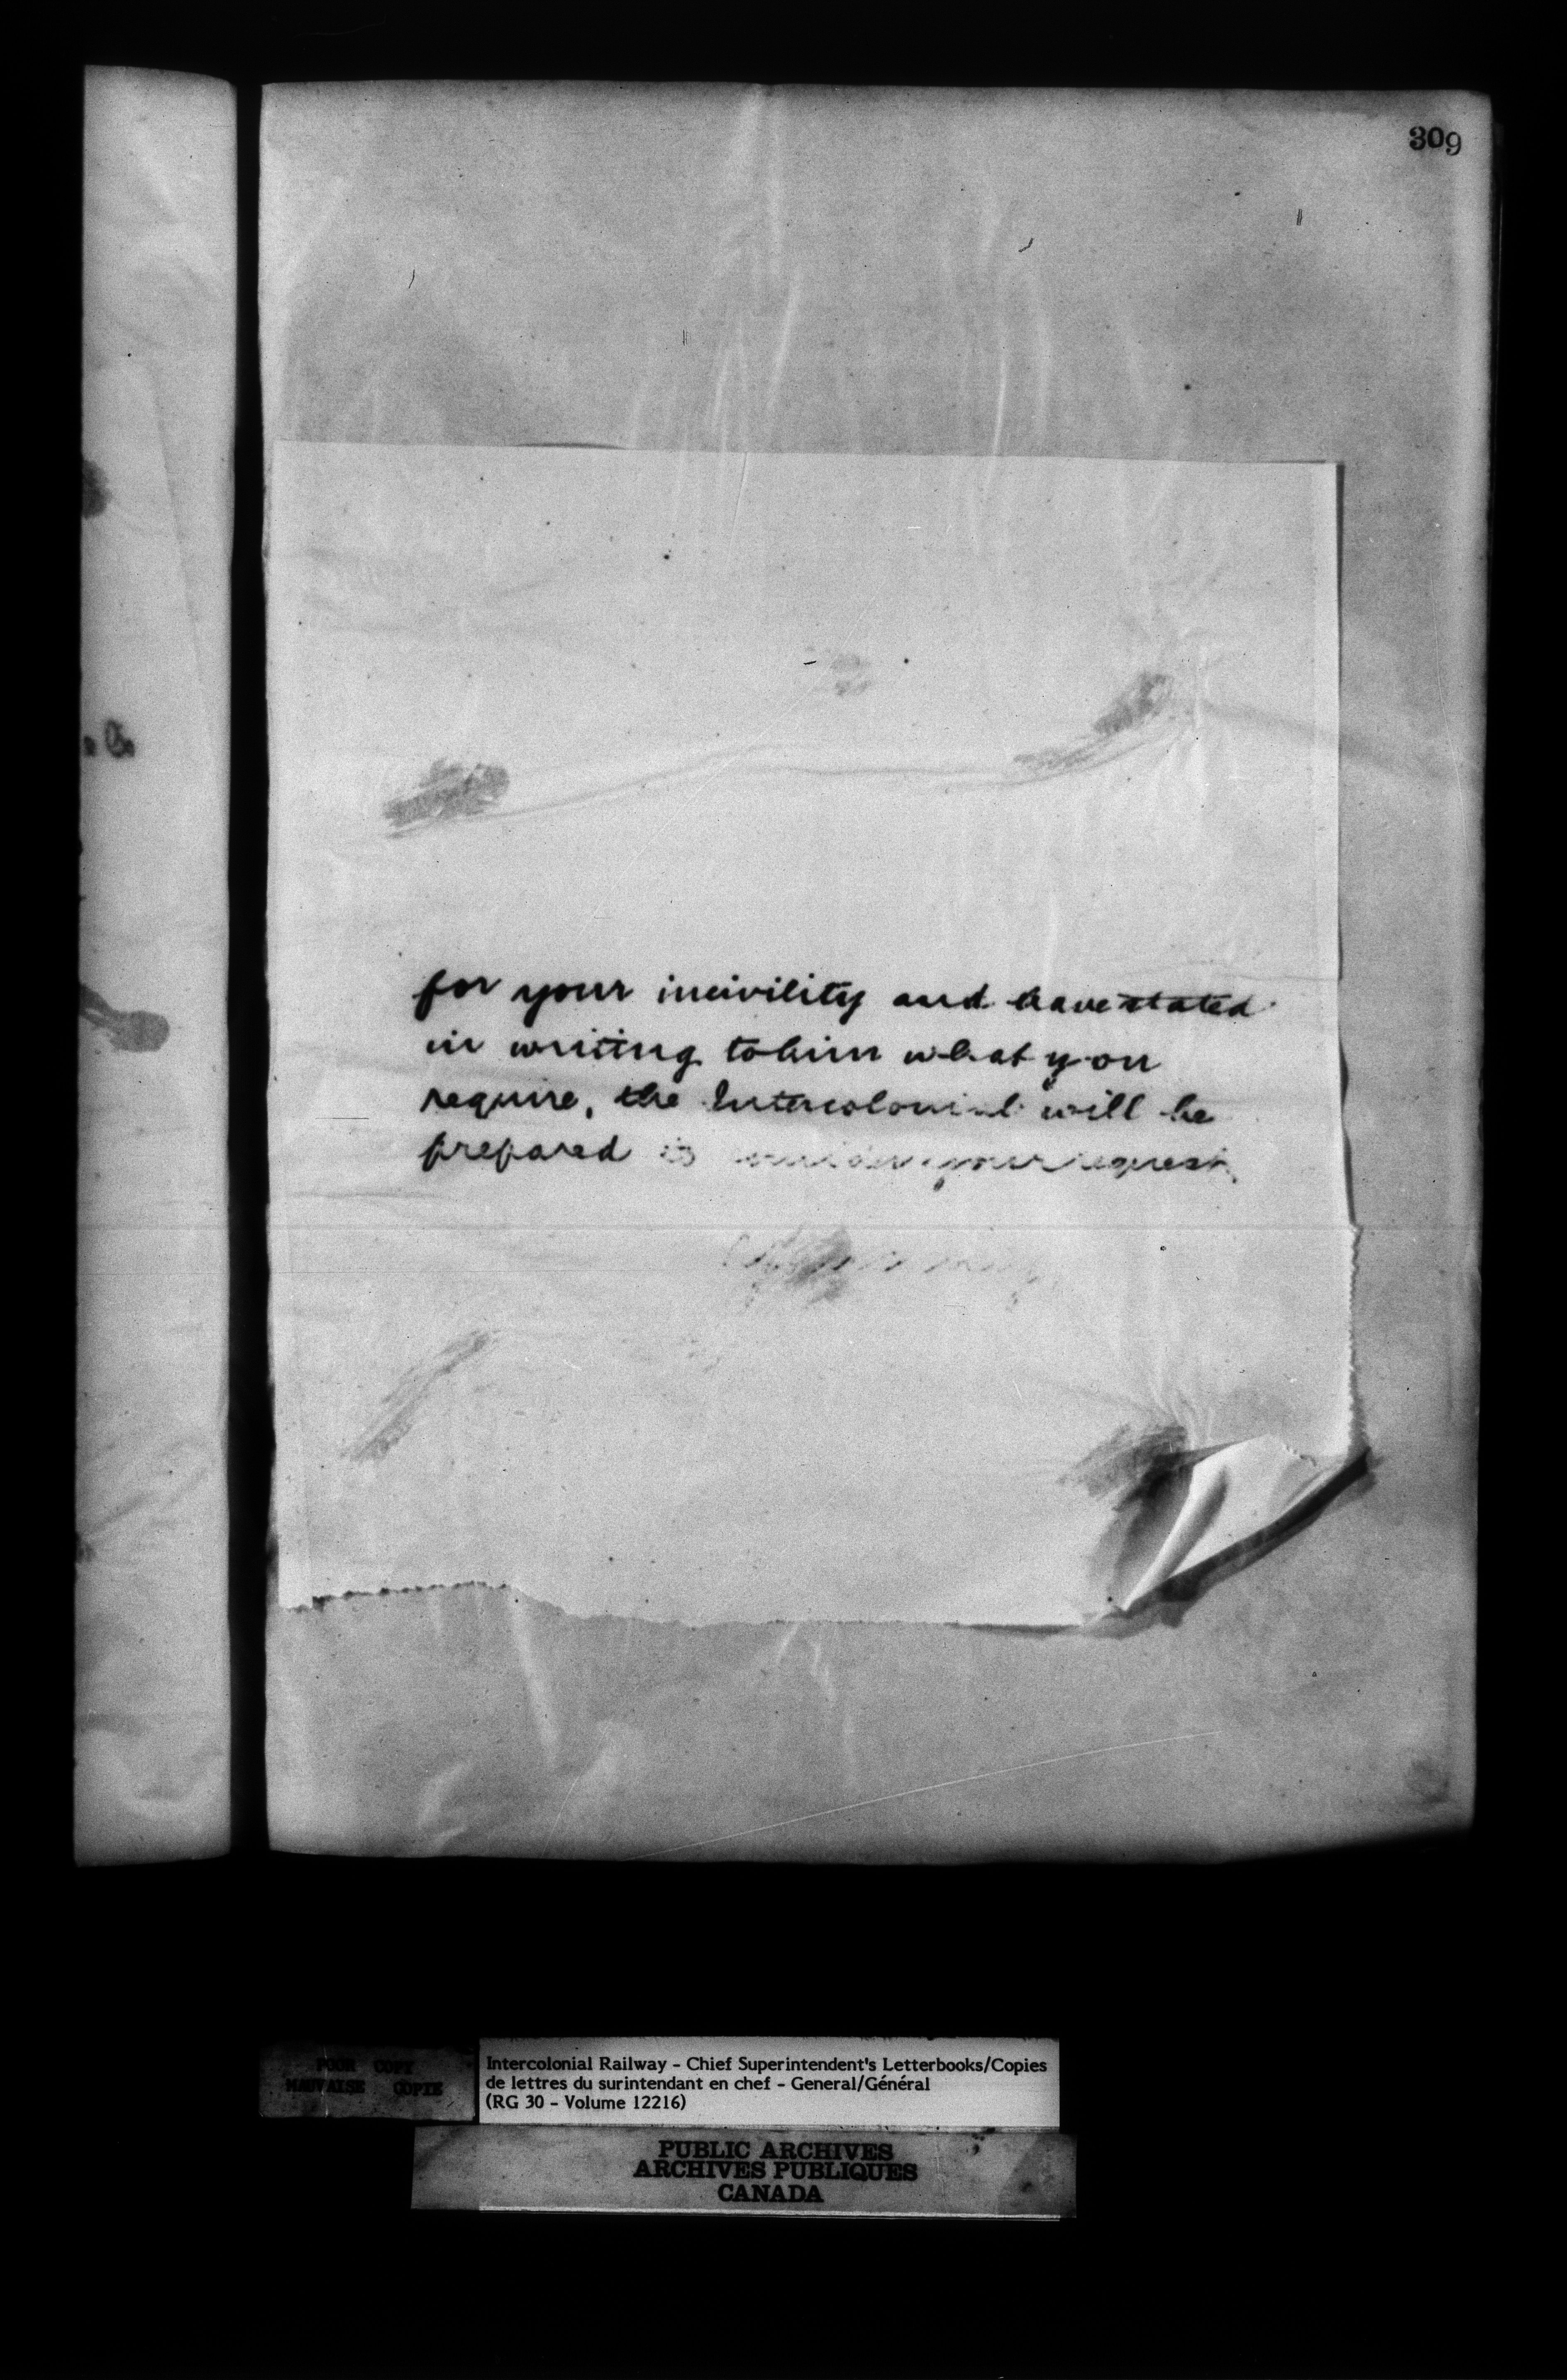 309
for your incivility and have stated
in writing to him what you
require, the Intercolonial will be
prepared to consider your request.
POOR COPY
MAUVAISE COPIE
Intercolonial Railway - Chief Superintendent's Letterbooks/Copies
de lettres du surintendant en chef - General/Général
(RG 30 - Volume 12216)
PUBLIC ARCHIVES
ARCHIVES PUBLIQUES
CANADA